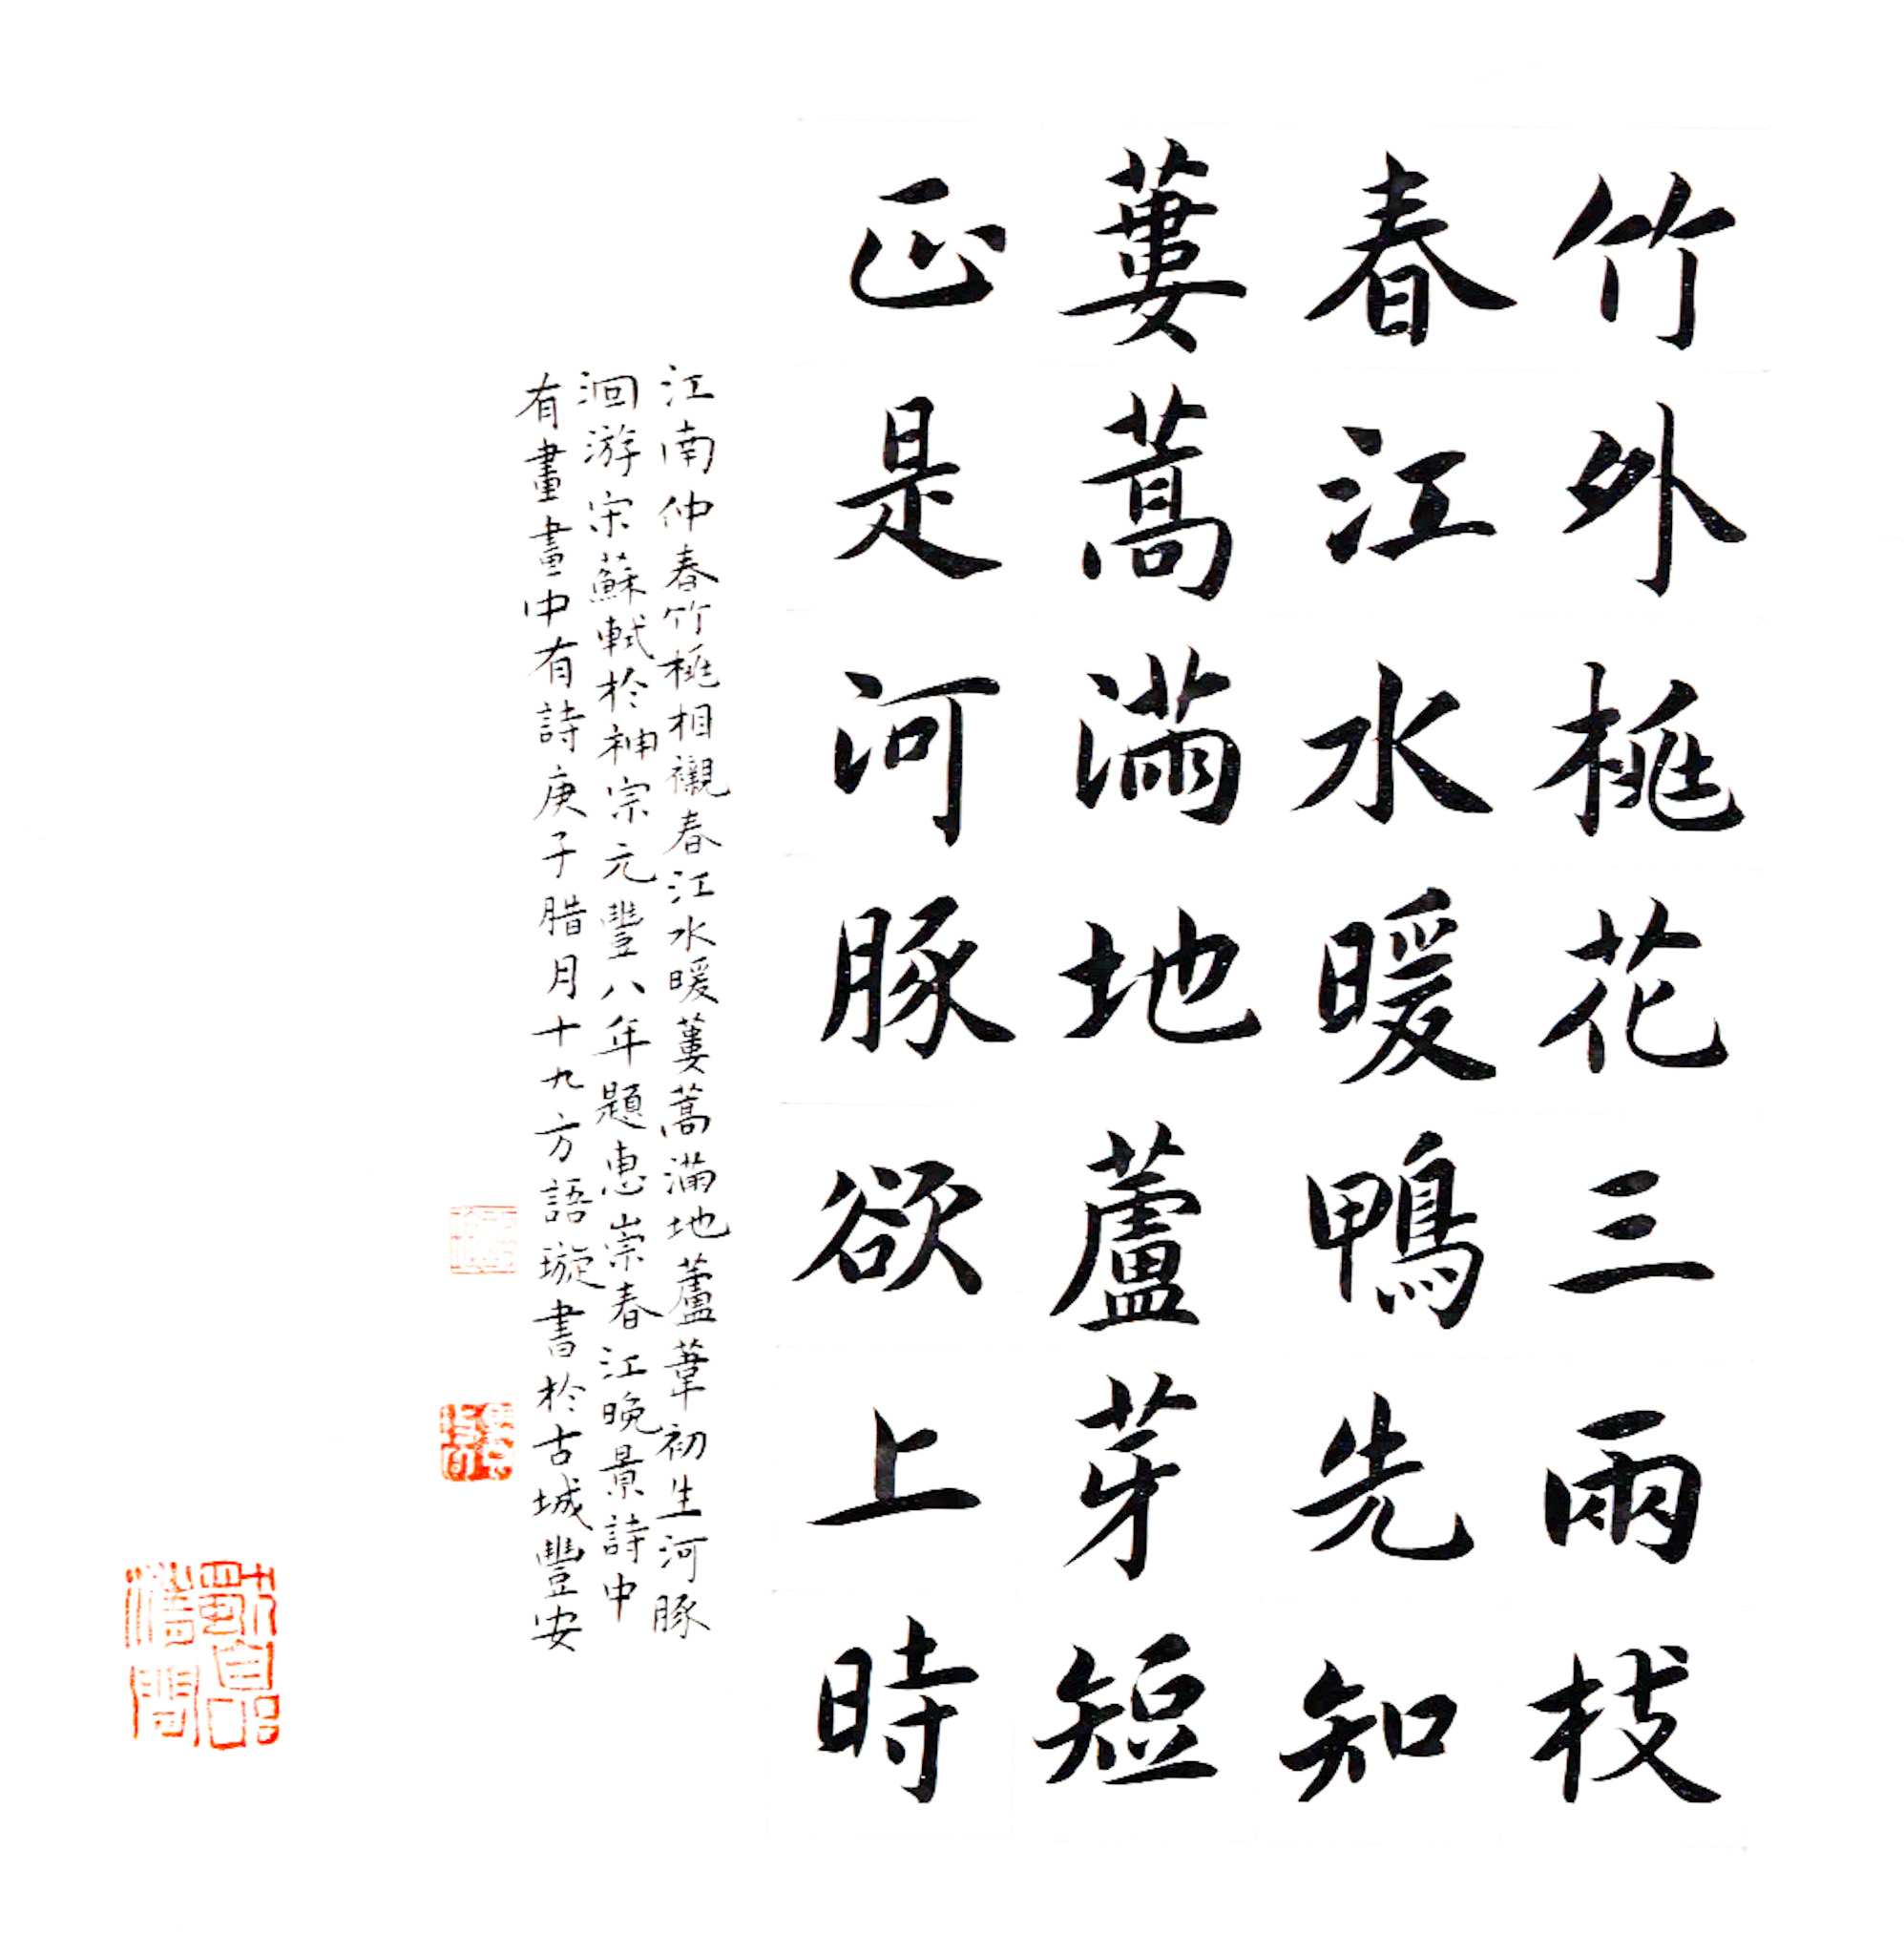 竹外桃花三兩枝
春江水暖鴨先知
蔞蒿滿地蘆芽短
正是河豚欲上時
江南仲春竹桃相襯春江水暖蔞蒿滿地蘆葦初生河豚
洄游宋蘇軾於神宗元豐八年題惠崇春江晚景詩中
有畫畫中有詩庚子腊月十九方語璇書於古城豐安